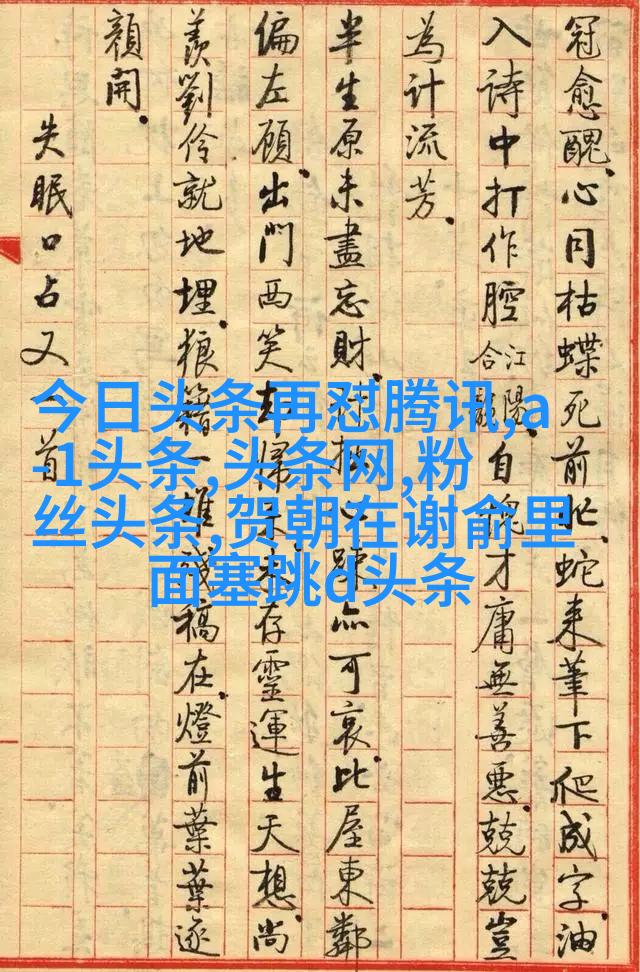 冠愈醜、心同枯蝶死前忙、蛇来筆下爬成字、油
入詩中打作腔江陽合韻。自愧才庸無善悪、兢兢豈
為計流芳。
半生原未盡忘財、計拙心疎亦可哀。比屋東鄰
偏左顧、出門西笑却歸呆、未存靈運生天想、尚
羨劉伶就地埋。狼籍一堆残稿在、燈前葉葉逐
顔開。
失眠口占又一首
今日头条再怼腾讯,a
-1头条,头条网,粉
丝头条,贺朝在谢俞里
面塞跳d头条